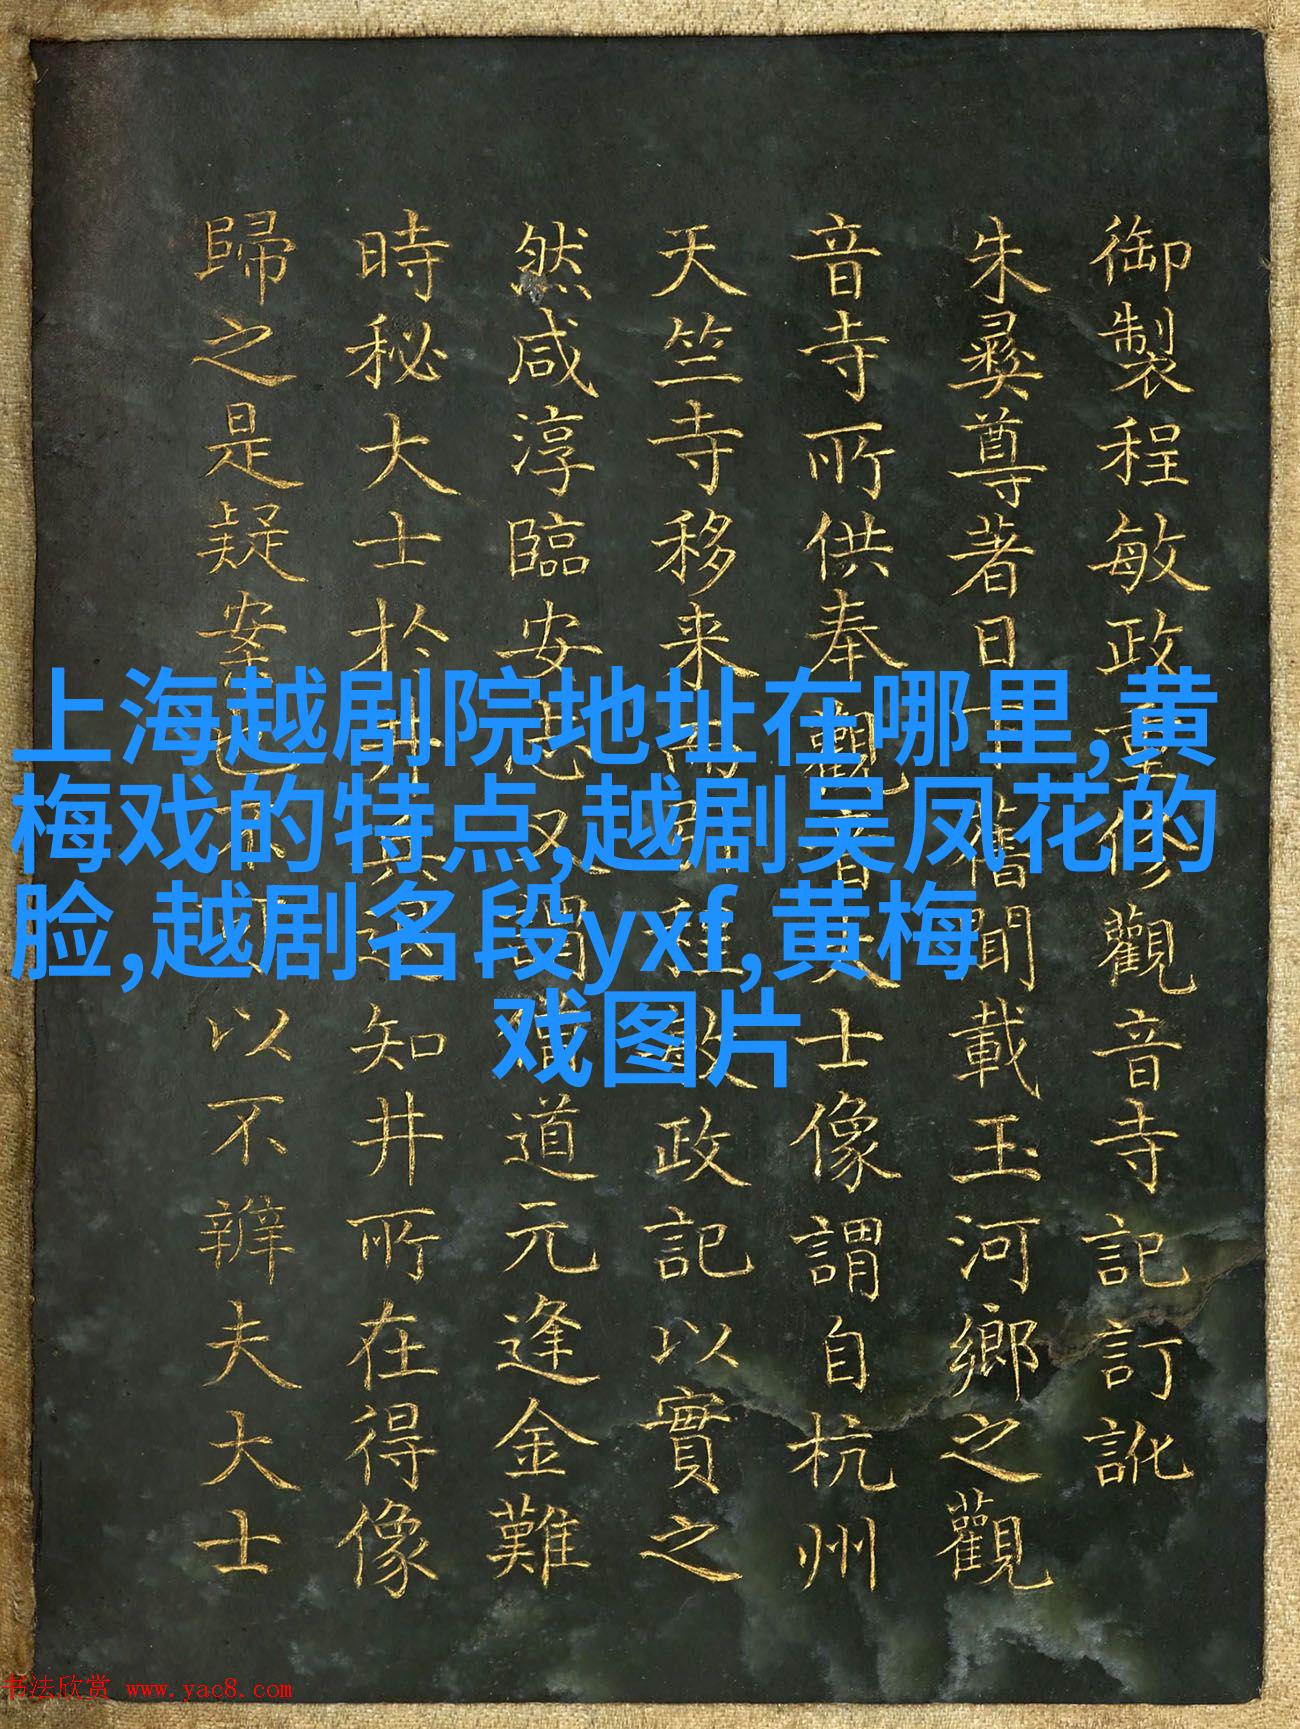 御製程敏政重修觀音寺記訂訛
朱彝尊著日下舊聞載玉河鄉之觀
音寺所供奉觀音大士像謂自杭州
天竺寺移来而以程敏政記以實之
然咸淳臨安志又謂僧道元逢金難
時秘大士於井兵退知井所在得像
歸之是疑案也不可以不辨夫大士
上海越剧院地址在哪里,黄
梅戏的特点,越剧吴凤花的
脸,越剧名段yxf,黄梅
戏图片
书法欣赏 www.yac8.com